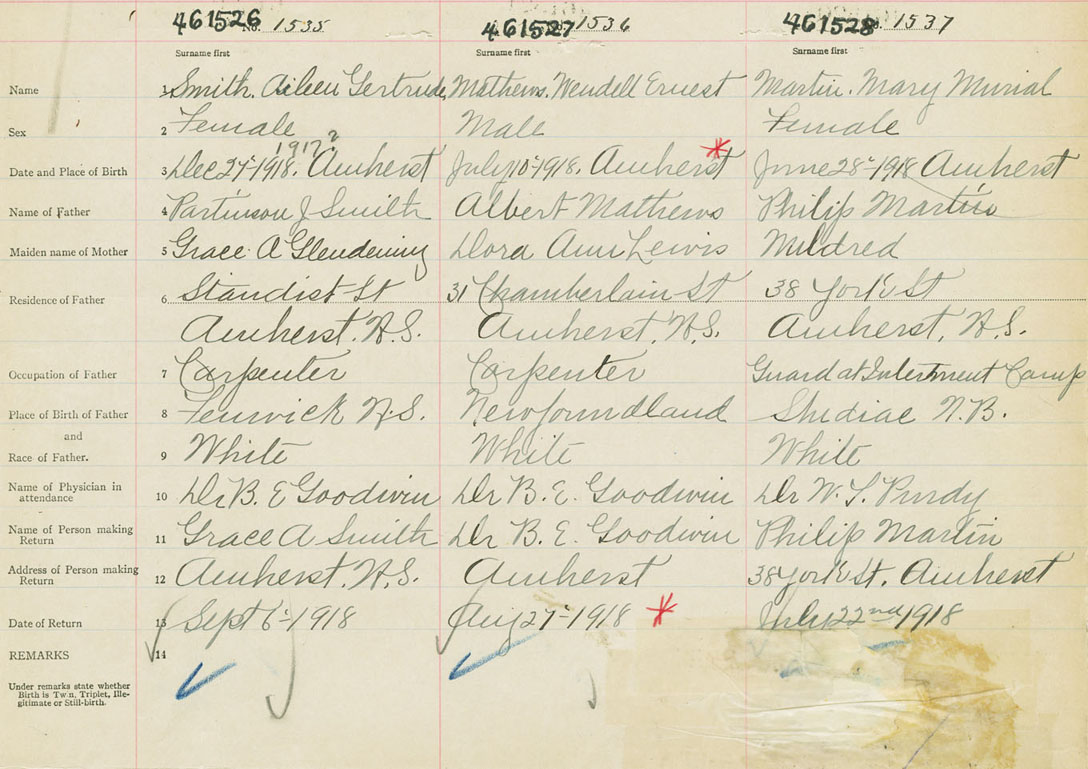 461526 No. 1535 461527 1536 461528 No. 1537
Surname first Surname first Surname first
Name 1 Smith. Aileen Gertrude, Mathews. Wendell Ernest Martin. Mary Murial
Sex 2 Female Male Female
1917?
Date and Place of Birth 3 Dec 27-1918. Amherst July 10-1918. Amherst * June 28-1918 Amherst
Name of Father 4 Partinson J Smith Albert Mathews Philip Martin
Maiden name of Mother 5 Grace A Glendening Dora Ann Lewis Mildred
Residence of Father 6 Standist St 31 Chamberlain St 38 York St
Amherst. N.S. Amherst. N.S. Amherst, N.S.
Occupation of Father 7 Carpenter Carpenter Guard at Interment Camp
Place of Birth of Father 8 Fenwick N.S. Newfoundland Shediac N.B.
and
Race of Father. 9 White White White
Name of Physician in
attendance 10 Dr B. E Goodwin Dr B. E. Goodwin Dr W. T. Purdy
Name of Person making
Return 11 Grace A Smith Dr B. E. Goodwin Philip Martin
Address of Person making
Return 12 Amherst. N.S. Amherst 38 York St. Amherst
Date of Return 13 Sept 6-1918 Aug 27-1918 * July 22nd 1918
REMARKS 14
Under remarks state whether
Birth is Twin, Triplet, Ille-
gitimate or Still-birth.